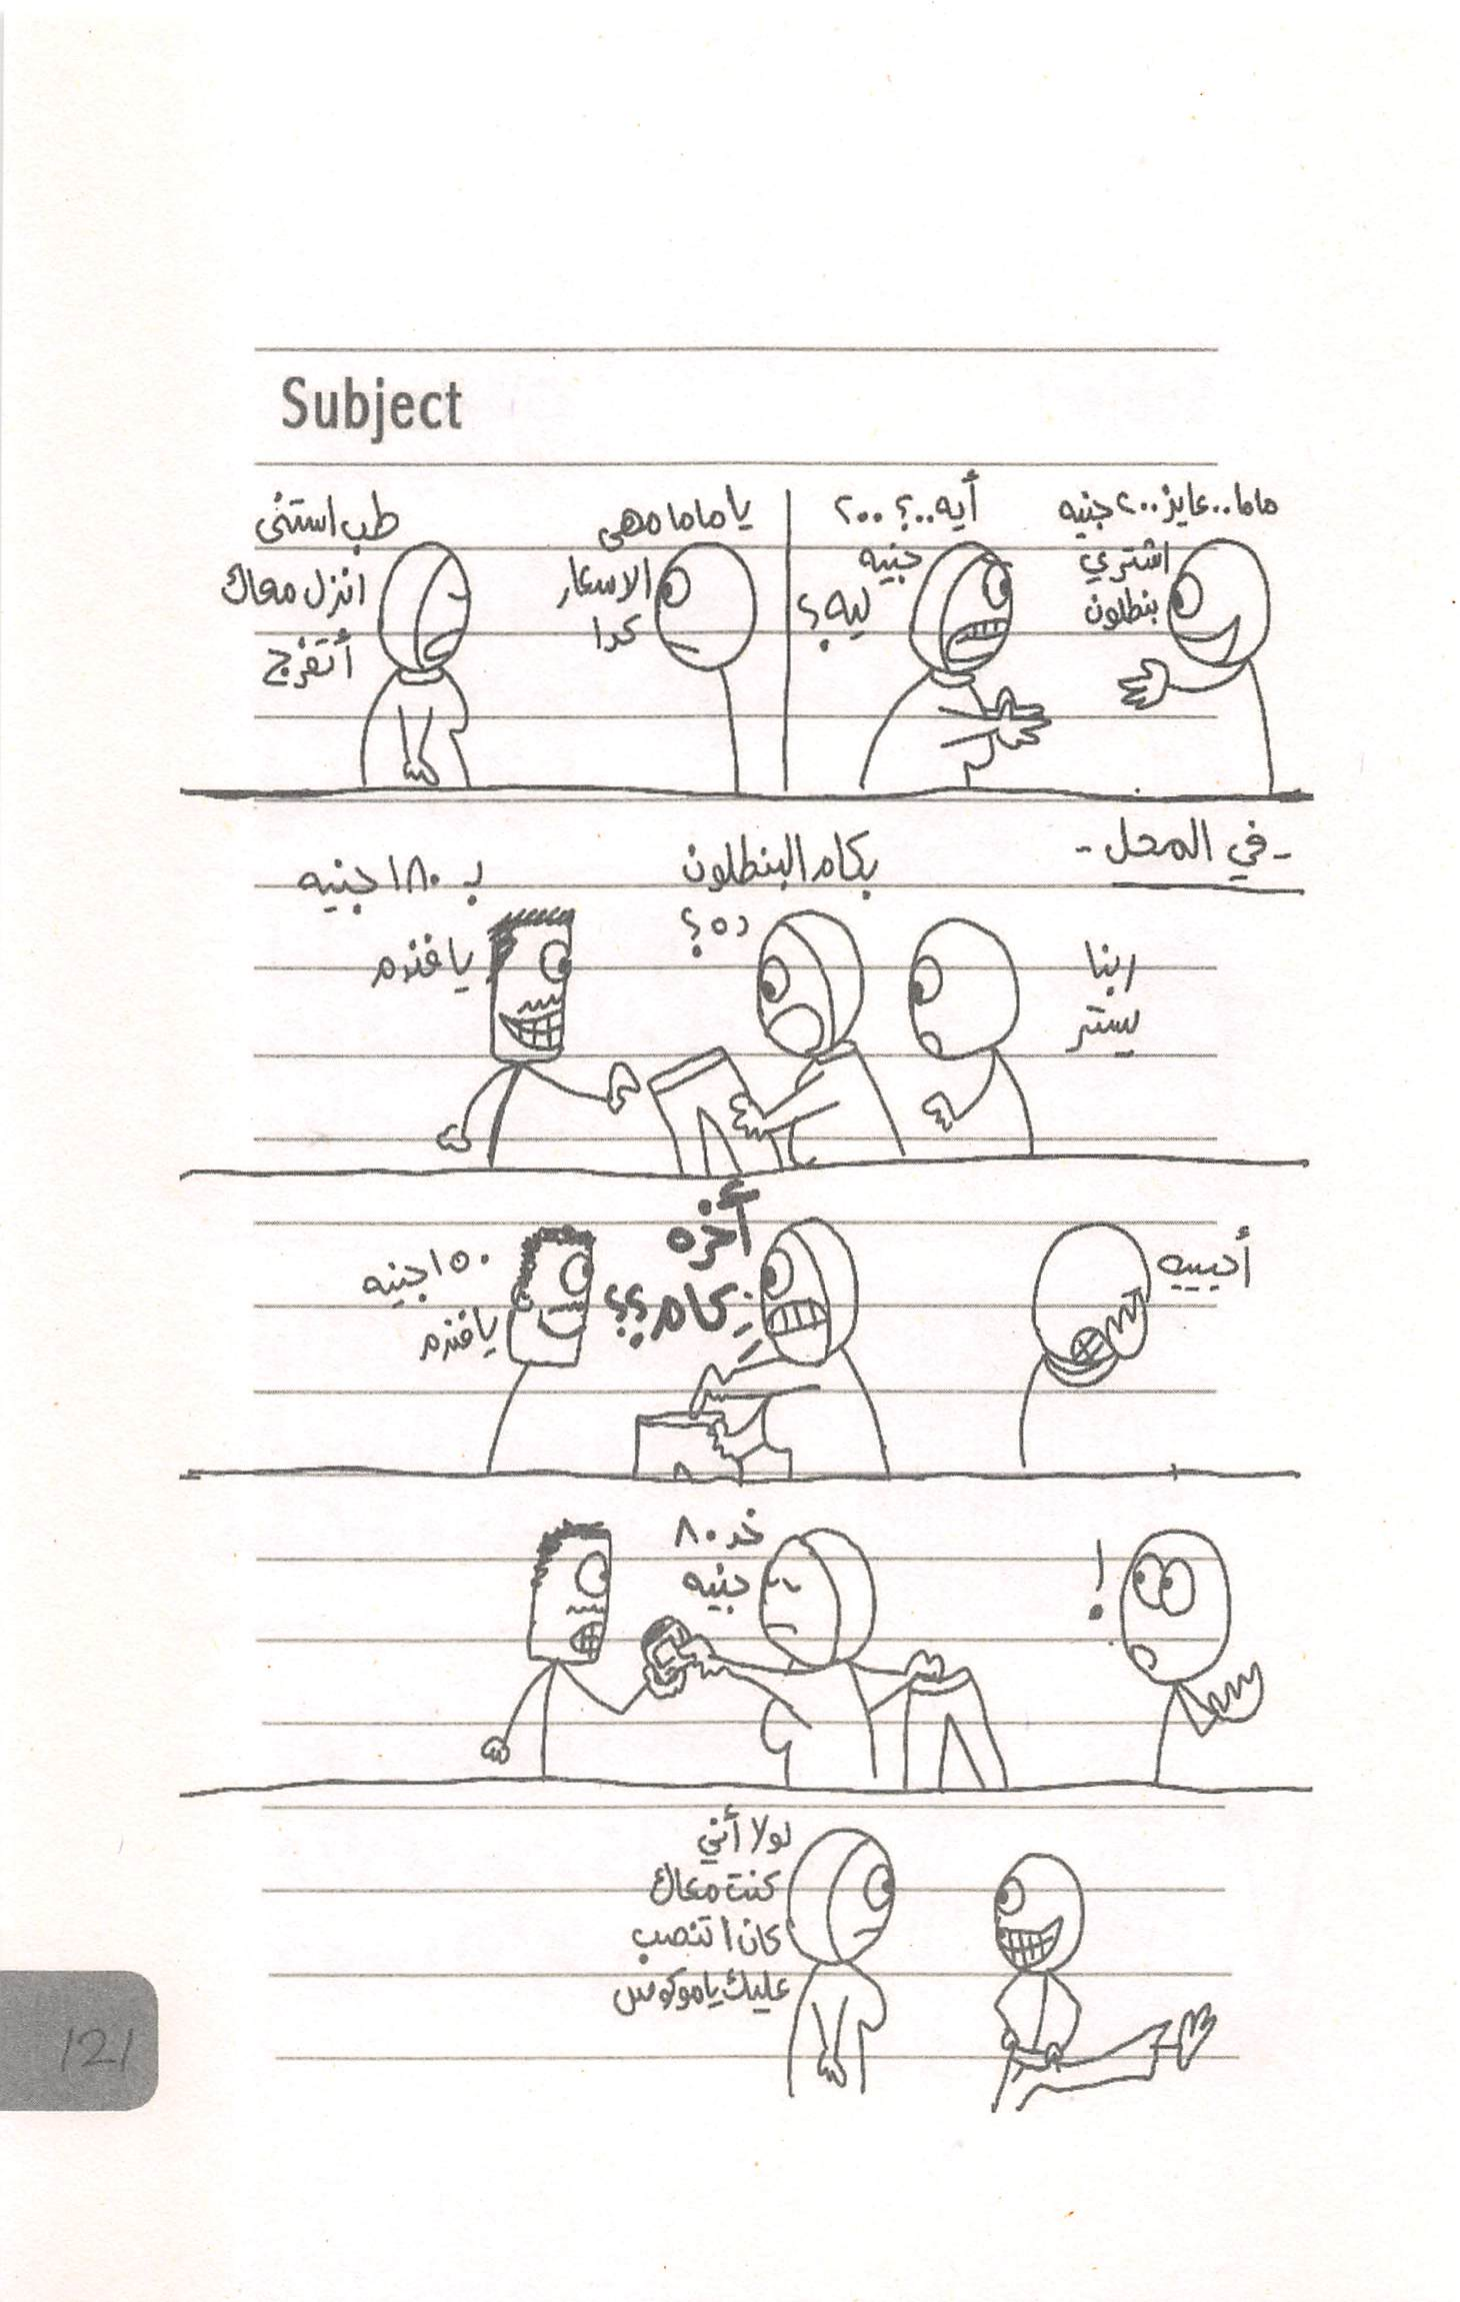 Subject
ماما..عايز ٢٠٠ جنيه
اشتري
بنطلون
أيه..؟ ٢٠٠
جنيه
ليه؟
يا ماما مهى
الاسعار
كدا
طب استنى
انزل معاك
أتفرج
- في المحل -
ربنا
يستر
بكام البنطلون
ده؟
بـ ١٨٠ جنيه
يا فندم
أحيييه
أخره
بكام؟؟
١٥٠ جنيه
يا فندم
!
خد ٨٠
جنيه
لولا أني
كنت معاك
كان اتنصب
عليك يا موكوس
121